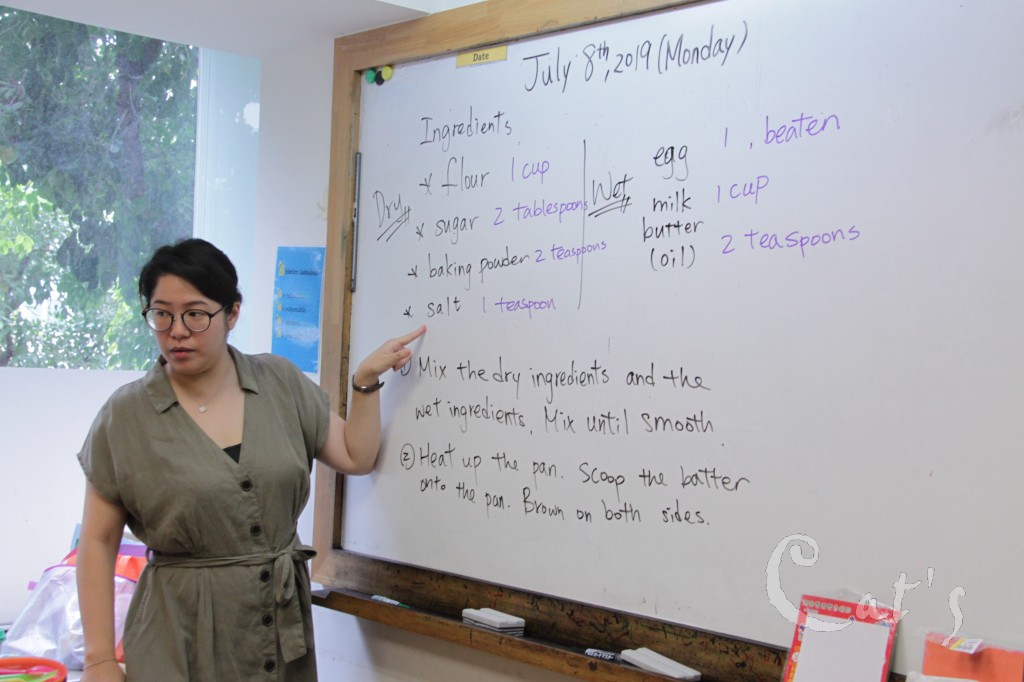 Date
July 8th, 2019 (Monday)
Ingredients
Dry
* flour 1 cup
* sugar 2 tablespoons
* baking powder 2 teaspoons
* salt 1 teaspoon
Wet
egg 1, beaten
milk 1 cup
butter
(oil) 2 teaspoons
Mix the dry ingredients and the
wet ingredients. Mix until smooth.
② Heat up the pan. Scoop the batter
onto the pan. Brown on both sides.
Cat's